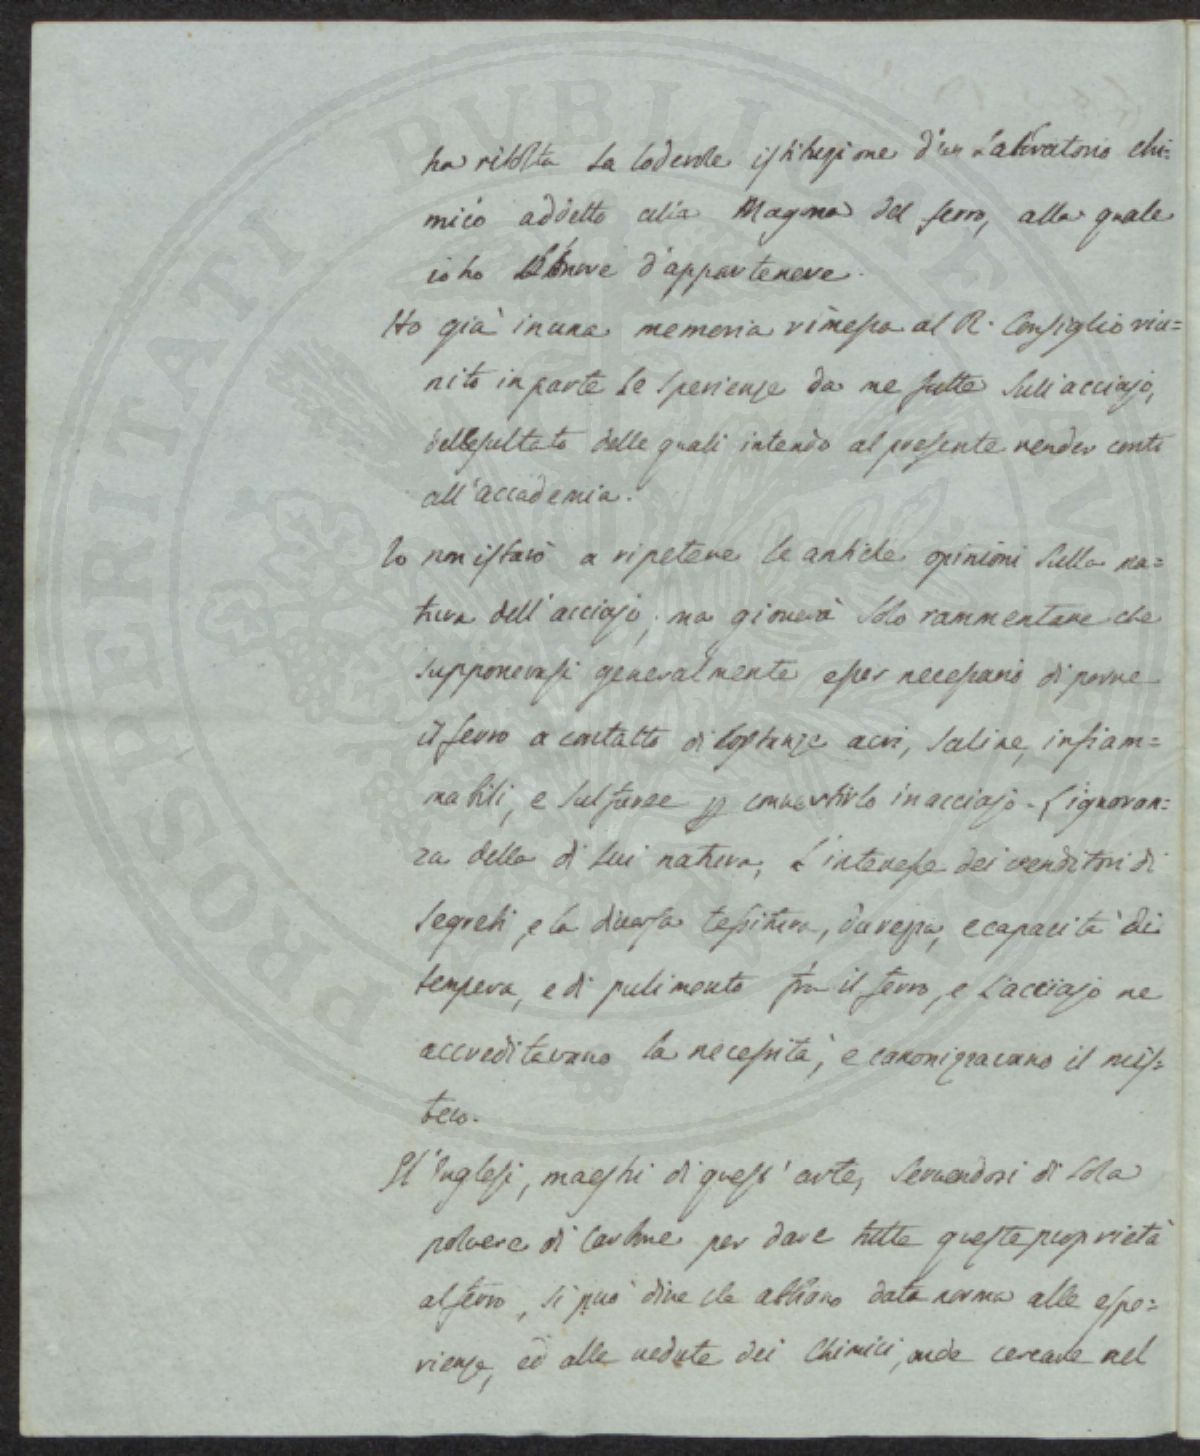 ha risolta la lodevole istituzione d'un Laboratorio chi=
mico addetto alla Magona del ferro, alla quale
io ho l'onore d'appartenere.
Ho già in una memoria rimessa al R. Consiglio riu=
nito in parte le sperienze da me fatte sull'acciajo,
del resultato delle quali intendo al presente render conto
all'accademia.
Io non istarò a ripetere le antiche opinioni sulla na=
tura dell'acciajo; ma gioverà solo rammentare che
supponevasi generalmente esser necessario di porre
il ferro a contatto di sostanze acri, saline, infiam=
mabili, e sulfuree p convertirlo in acciajo. L'ignoran=
za della di lui natura, l'interesse dei venditori di
segreti, e la diversa tessitura, durezza, e capacità di
tempera, e di pulimento fra il ferro, e l'acciajo ne
accreditavano la necessità, e canonizzavano il mis=
tero.
Gl'Inglesi, maestri di quest'arte, servendosi di sola
polvere di Carbone per dare tutte queste proprietà
al ferro, si può dire che abbiano data norma alle espe=
rienze, ed alle vedute dei Chimici, onde cercare nel
PROSPERITATI PVBLICAE